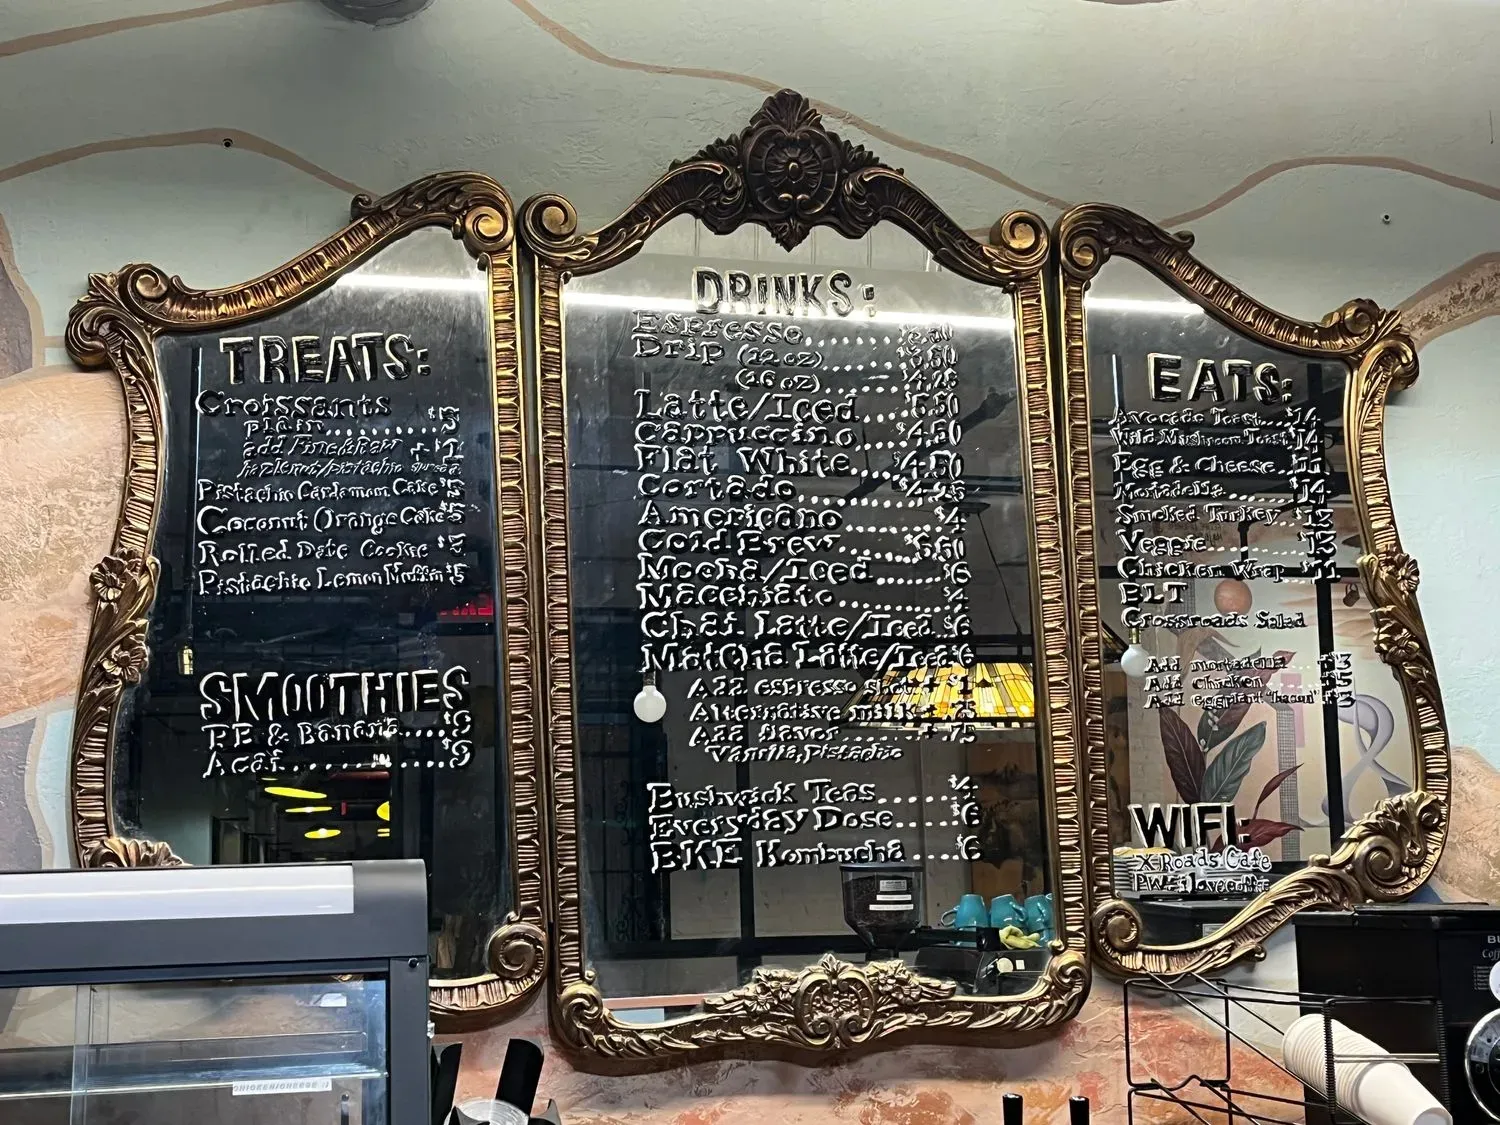 TREATS:
Croissants
plain.......... $5
add
Pistachio Cardamom Cake $5
Coconut Orange Cake $5
Rolled Date Cookie
Pistachio Lemon Muffin $5
SMOOTHIES
PB & Banana..... $9
Acai............ $9
DRINKS:
Espresso........
Drip (12oz)......
(16oz)......
Latte/Iced.....
Cappuccino..... $4.50
Flat White..... $4.50
Cortado........
Americano....... $4
Cold Brew......
Mocha/Iced..... $6
Macchiato....... $4
Chai Latte/Iced.. $6
Matcha Latte/Iced $6
Add espresso shot + $1
Alternative milk +
Add flavor..... + .75
Vanilla, Pistachio
Bushwick Teas..... $4
Everyday Dose..... $6
BKE Kombucha .... $6
EATS:
Avocado Toast.. $14
Wild Mushroom Toast $14
Egg & Cheese..
Mortadella....... $14
Smoked Turkey
Veggie..........
Chicken Wrap
BLT
Crossroads Salad
Add mortadella..... $3
Add Chicken........
Add eggplant "bacon" $3
WIFI:
X-Roads Cafe